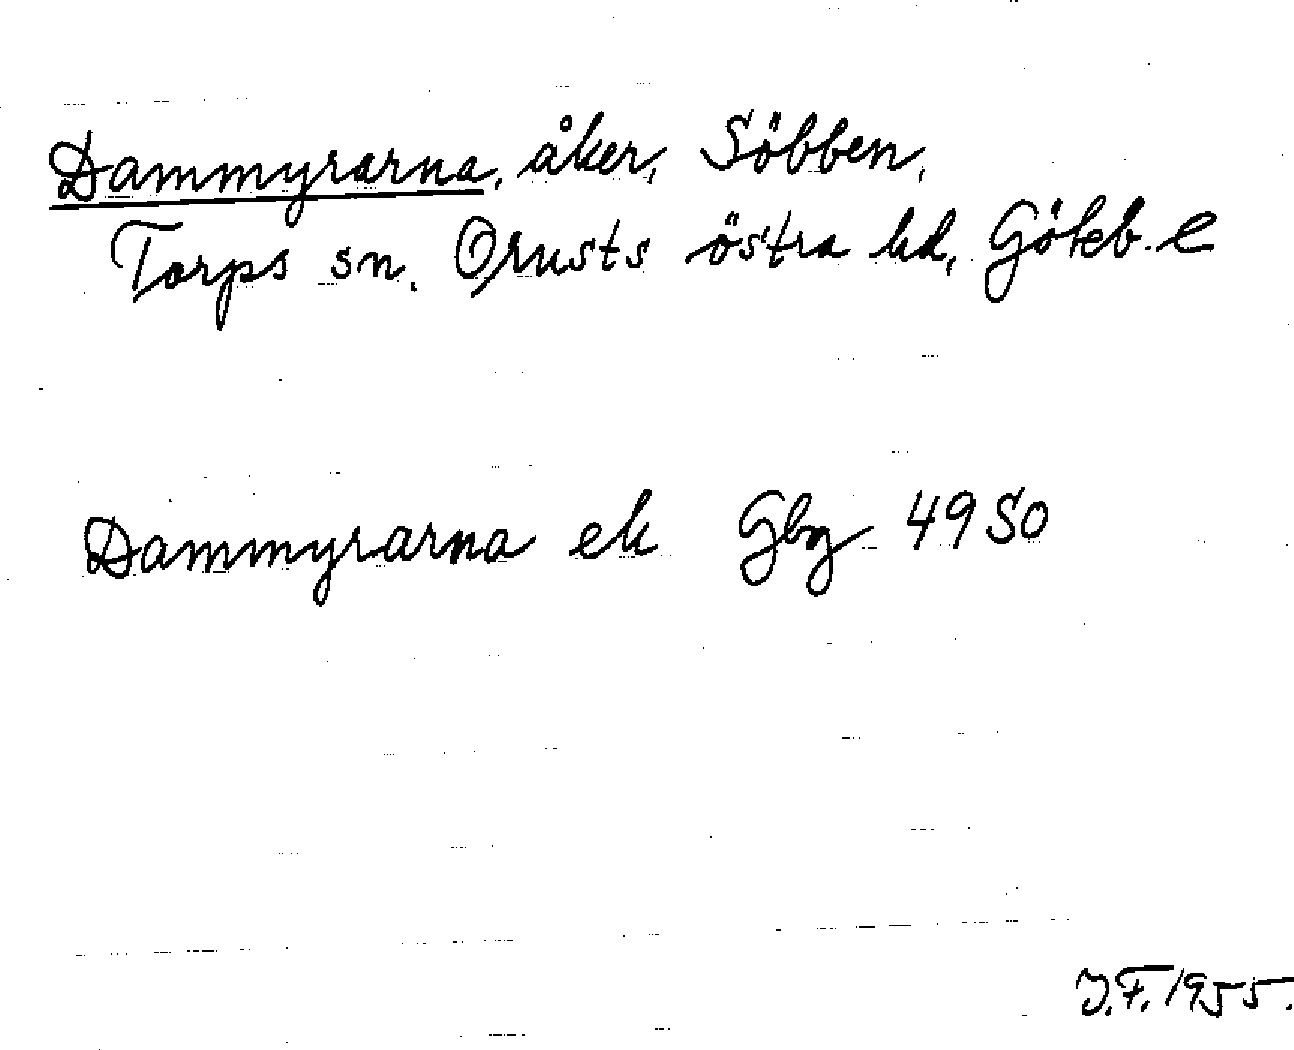 Dammyrarna, åker, Söbben,
Torps sn. Orusts östra hd, Göteb. l
Dammyrarna ek Gbg 49 S0
J.F. 1955.